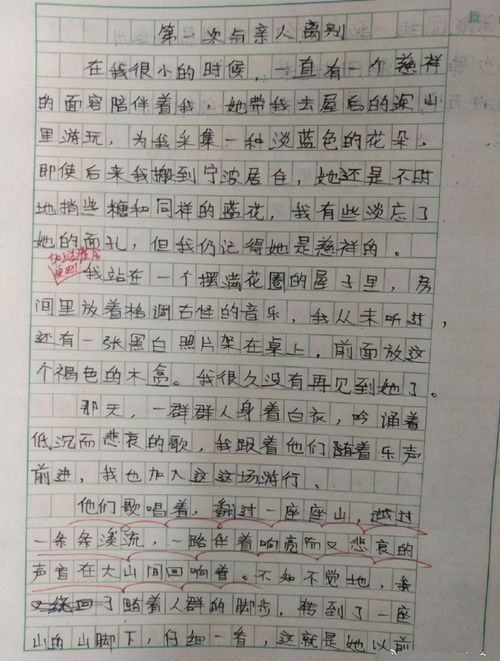 第一次与亲人离别
在我很小的时候，一直有一个慈祥
的面容陪伴着我，她带我去屋后的深山
里游玩，为我采集一种淡蓝色的花朵，
即使后来我搬到宁波居住，她还是不时
地捎些糖和同样的蓝花，我有些淡忘了
她的面孔，但我仍记得她是慈祥的。
我站在一个摆满花圈的屋子里，房
间里放着格调古怪的音乐，我从未听过，
还有一张黑白照片架在桌上，前面放这
个褐色的木盒。我很久没有再见到她了。
那天，一群群人身着白衣，吟诵着
低沉而悲哀的歌，我跟着他们随着乐声
前进，我也加入这这场游行。
他们歌唱着，翻过一座座山，越过
一条条溪流，一路伴着响亮而又悲哀的
声音在大山间回响着。不知不觉地，我
了踏着人群的脚步，转到了一座
山的山脚下，仔细一看，这就是她以前